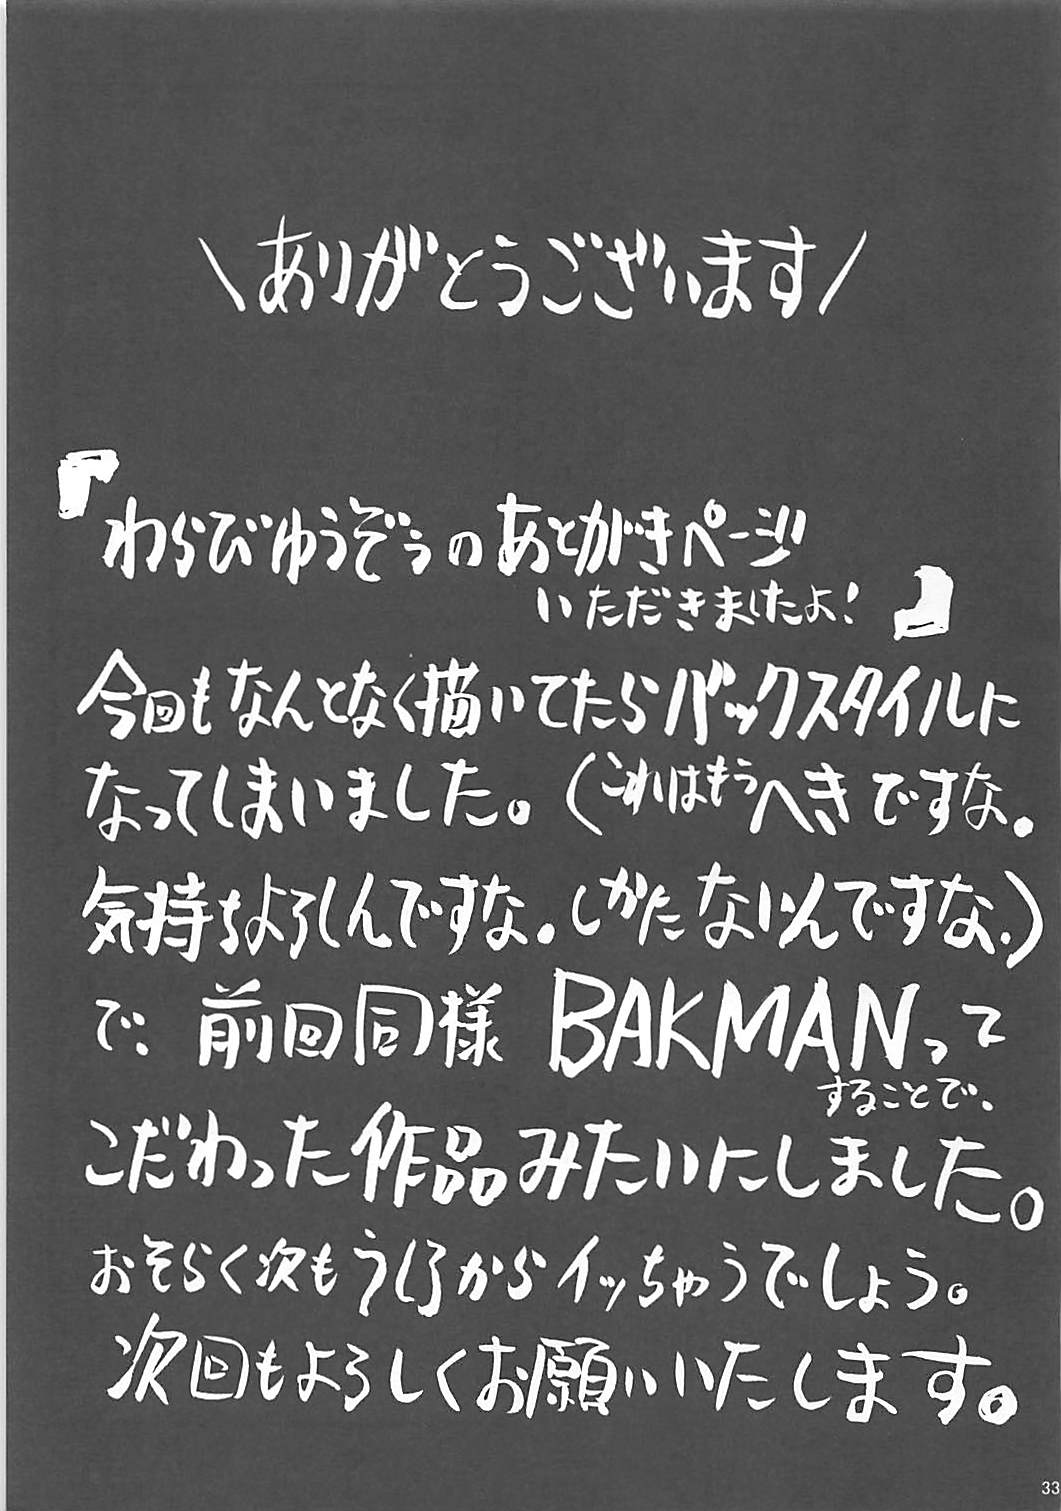 \ありがとうございます/
『わらびゆうぞぅのあとがきページ
いただきましたよ!』
今回もなんとなく描いてたらバックスタイルに
なってしまいました。(これはもうへきですな.
気持ちよろしんですな.しかたないんですな.)
で、前回同様BAKMANって
することで、
こだわった作品みたいにしました。
おそらく次もうしろからイッちゃうでしょう。
次回もよろしくお願いいたします。
33